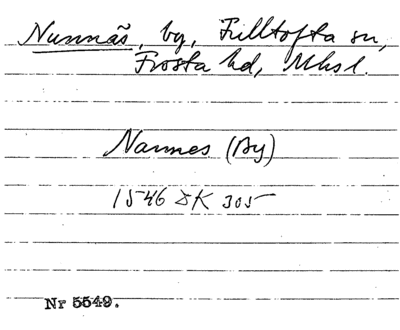 Nunnäs, by, Fulltofta sn,
Frosta hd, Mhs l.
Nannes (By)
1546 DK 305
Nr 5549.